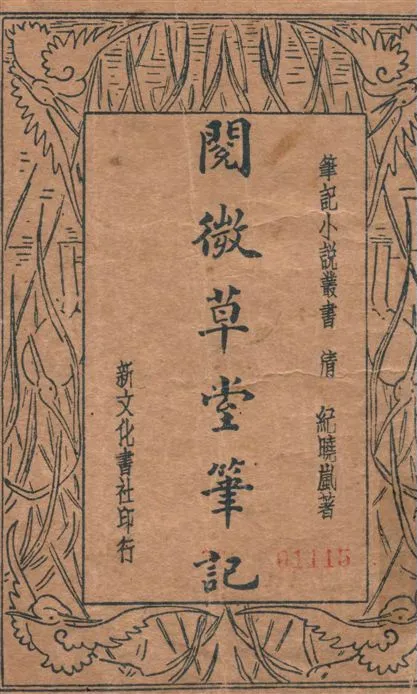 筆記小說叢書 清 紀曉嵐著
閱微草堂筆記
新文化書社印行
01115